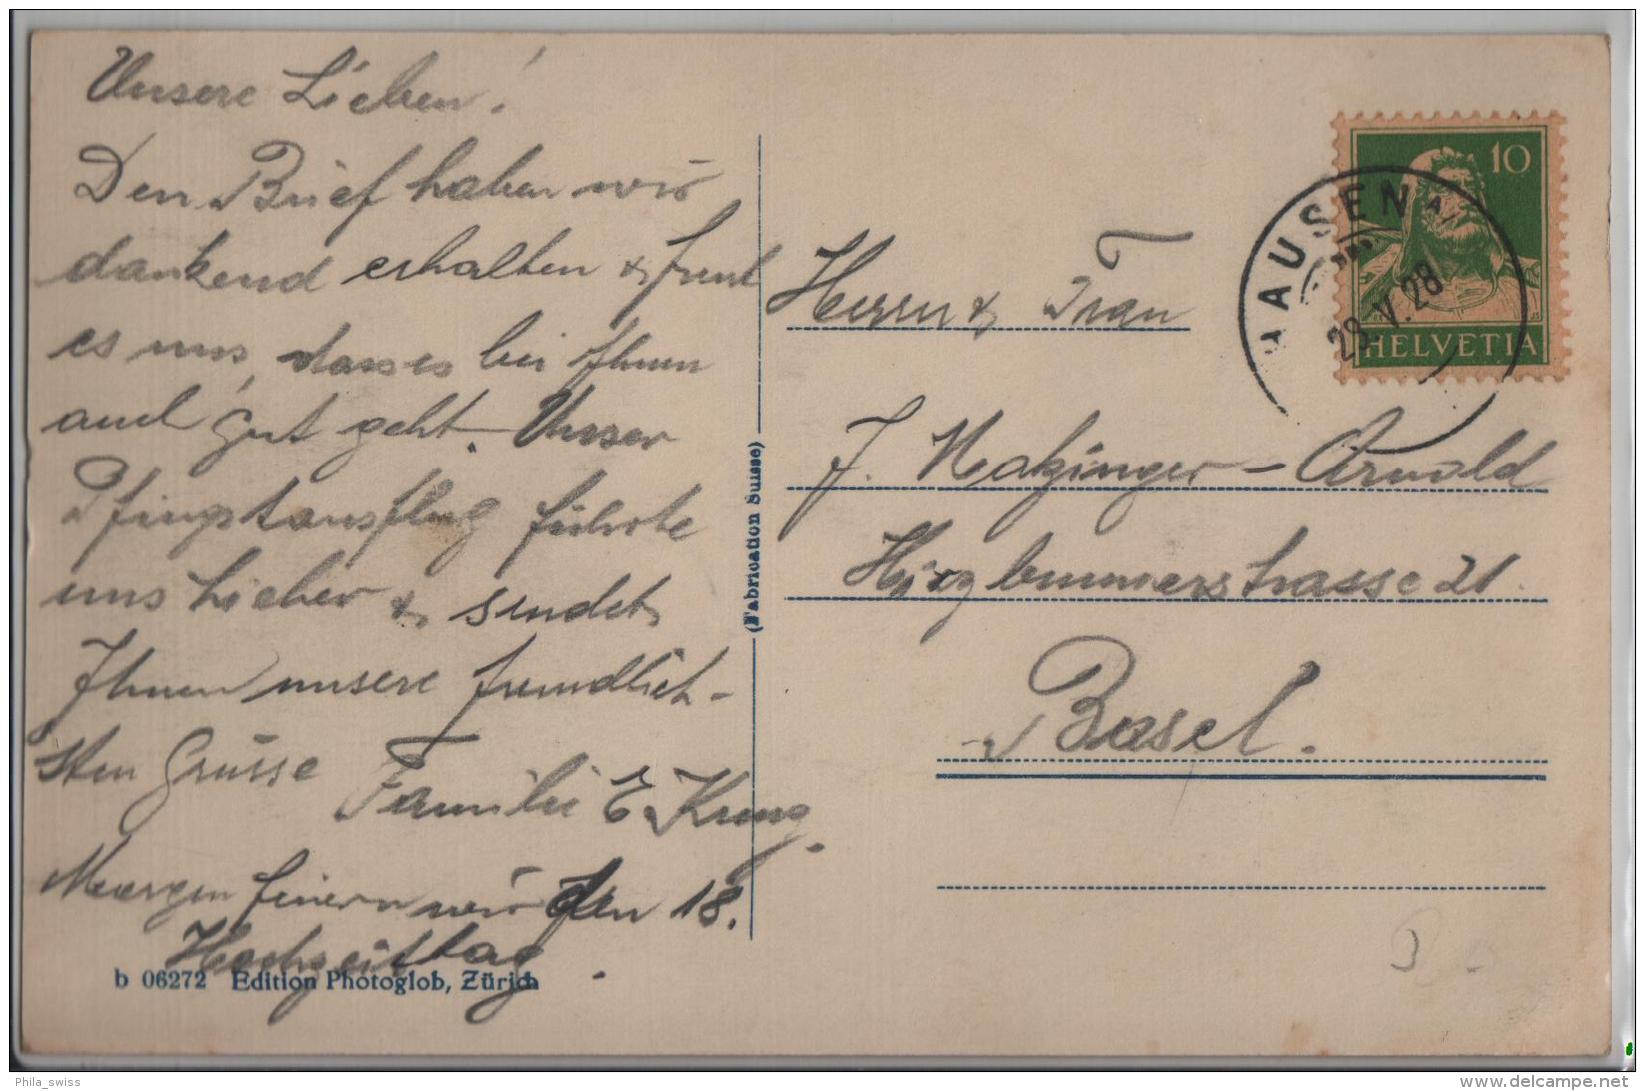 Unsere Lieben!
Den Brief haben wir
dankend erhalten & freut
es uns, dass es bei Ihnen
auch gut geht. Unser
Pfingstausflug führte
uns hieher & sendet
Ihnen unsere freundlich-
sten Grüsse
Familie E. Krug.
Morgen feiern wir den 18.
Hochzeittag.
b 06272 Edition Photoglob, Zürich
(Fabrication Suisse)
10
HELVETIA
HAUSEN A/
28.V.28
Herrn & Frau
J. Matzinger-Arnold
Hirzbrunnerstrasse 21.
Basel.
Phila_swiss
www.delcampe.net